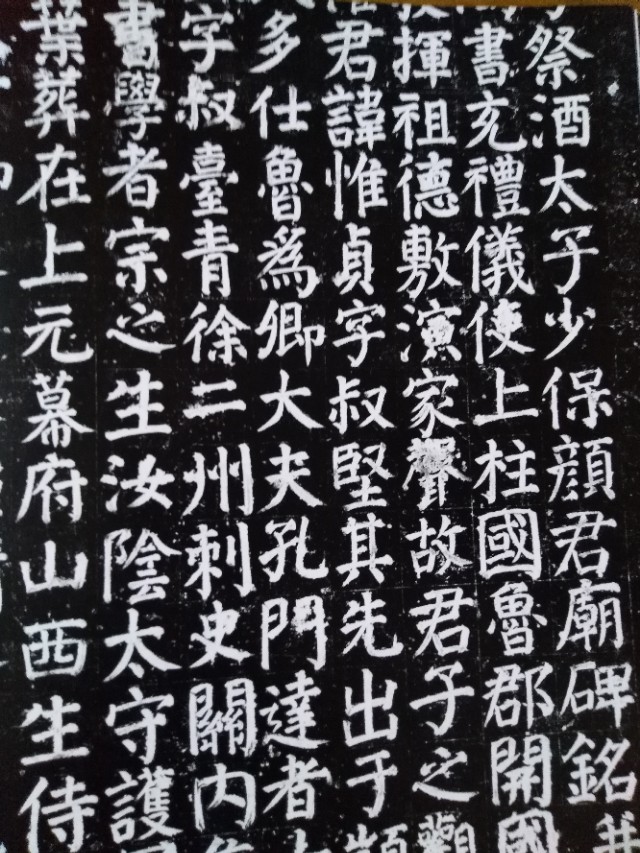 祭酒太子少保顏君廟碑銘
書充禮儀使上柱國魯郡開國
揮祖德敷演家聲故君子之觀
君諱惟貞字叔堅其先出于顓
多仕魯爲卿大夫孔門達者
字叔臺青徐二州刺史關內
書學者宗之生汝陰太守護
葉葬在上元幕府山西生侍